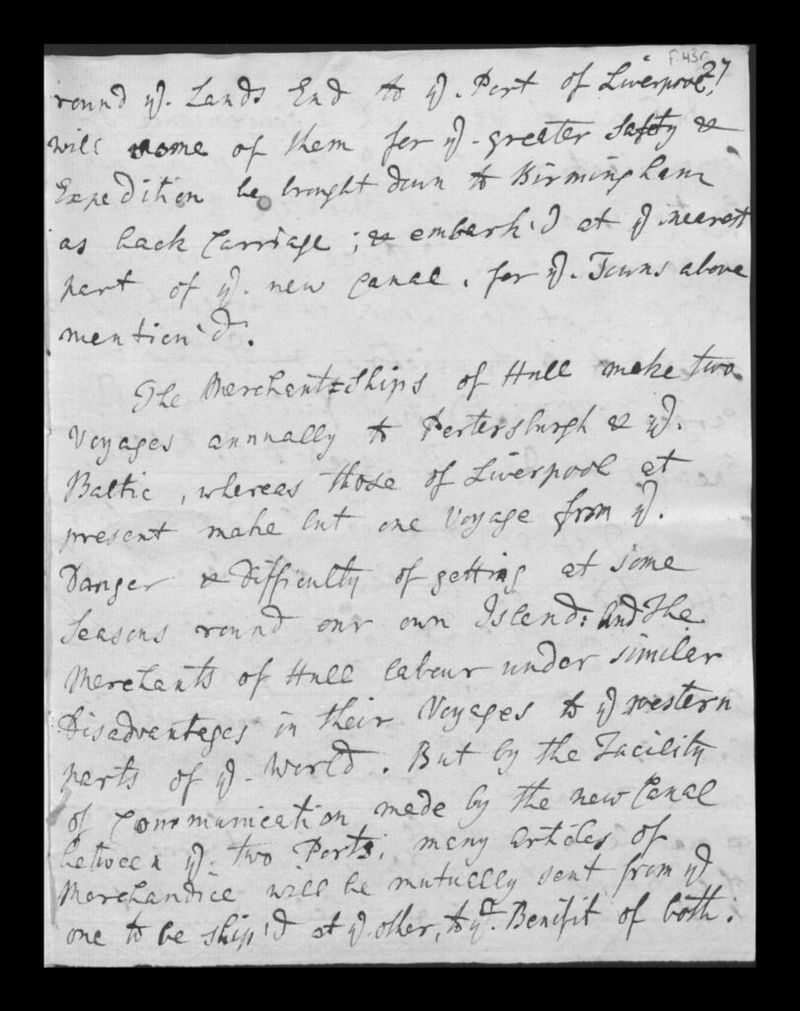 f.43r
27
round ye. Lands End to ye. Port of Liverpool,
will some of them for ye. greater Safety &
Expedition be brought down to Birmingham
as back Carriage ; & embark'd at ye nearest
part of ye. new Canal, for ye. Towns above
mention'd.
The Merchant=Ships of Hull make two
Voyages annually to Pertersburgh & ye.
Baltic , whereas those of Liverpool at
present make but one Voyage from ye.
Danger & Difficulty of getting at some
Seasons round our own Island: And The
Merchants of Hull labour under similar
Disadvantages in their Voyages to ye western
parts of ye. World . But by the Facility
of Communication made by the new Canal
between ye. two Ports, many articles of
Merchandice will be mutually sent from ye
one to be ship'd at ye. other, to ye. Benifit of both.